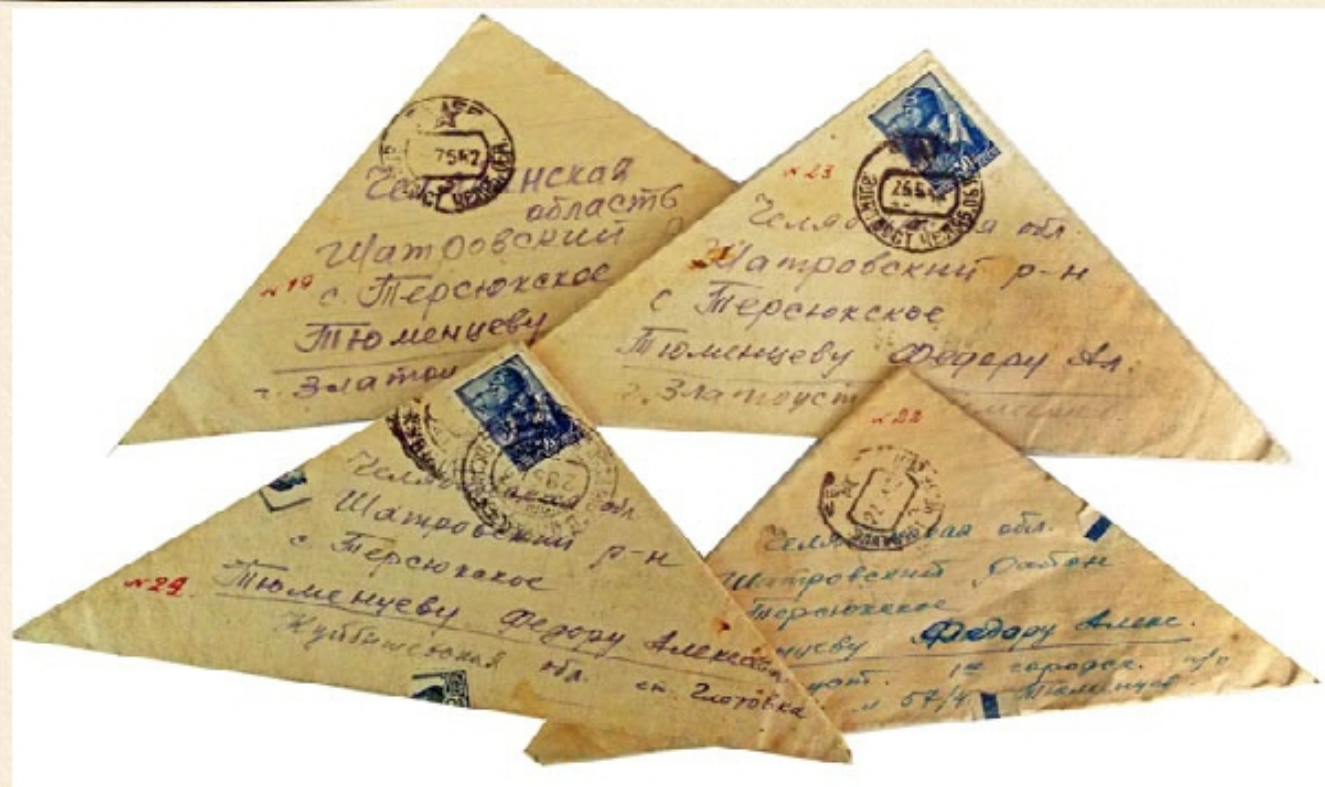 7542
нская
область
Шатровский
с Терсюкское
Тюменцеву
г. Златоу
н 19
н 23
ЗЛАТОУСТ ЧЕЛЯБ.ОБЛ.
Челяб я обл.
Шатровский р-н
с Терсюкское
Тюменцеву Федору Ал.
г. Златоуст
Челяб ская обл
Шатровский р-н
с Терсюкское
н 24
Тюменцеву Федору Алексан
Куйбышевская обл. ст. Глотовка
н 22
Челяб ская обл.
Шатровский район
Терсюкское
нцеву Федору Алекс.
уст. 1ое городск. п/о
н 57/4 Тюменцев